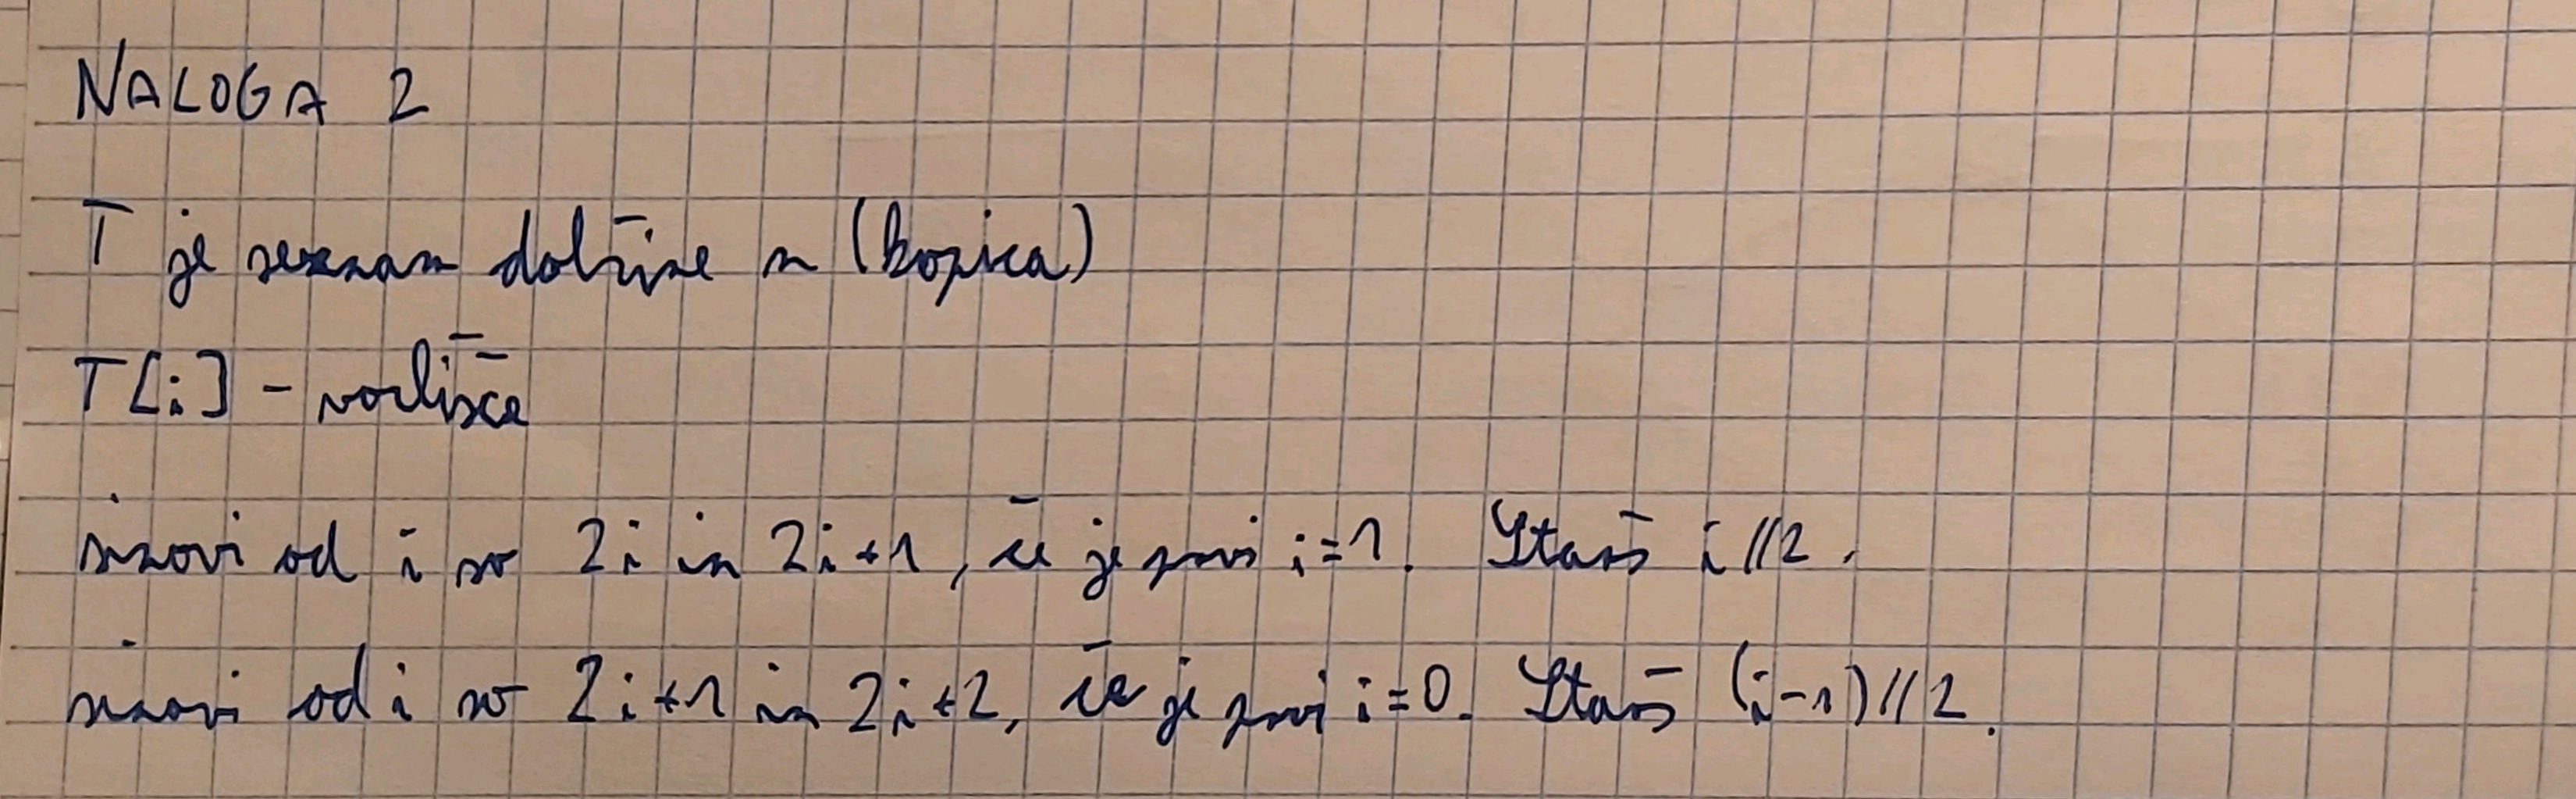 NALOGA 2
T je seznam dolžine n (kopica)
T[i] - vozlišče
sinovi od i so 2i in 2i+1, če je prvi i=1. Starš i//2.
sinovi od i so 2i+1 in 2i+2, če je prvi i=0. Starš (i-1)//2.